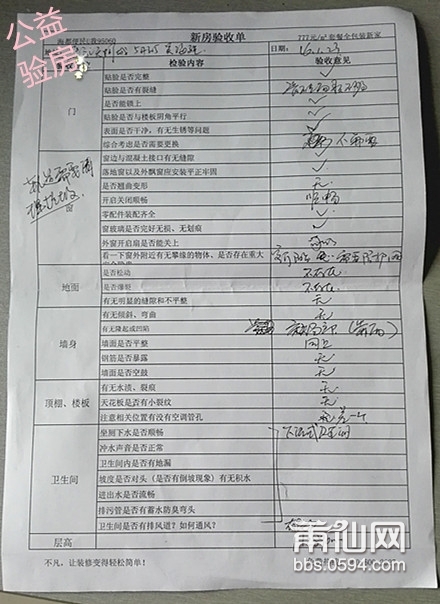 公益
验房
海都便民U盘95060
新房验收单
777元/m²套餐全包装新家
日期:
检验内容
验收意见
门
贴脸是否完整
贴脸是否有裂缝
是否能锁上
贴脸是否与楼板阴角平行
表面是否干净,有无生锈等问题
综合考虑是否需要更换
不需要
窗
窗边与混凝土接口有无缝隙
落地窗以及外飘窗应安装平正牢固
是否翘曲变形
无
开启关闭顺畅
顺畅
零配件装配齐全
窗玻璃是否完好无损、无划痕
外窗开启扇是否能关上
看一下窗外附近有无攀缘的物体,是否存在重大
地面
是否松动
不存在
是否薄脏
不存在
有无明显的缝隙和不平整
无
墙身
有无倾斜、弯曲
无
有无隆起或凹陷
墙面是否平整
同上
钢筋是否暴露
无
墙面是否空鼓
无
顶棚、楼板
有无水渍、裂痕
无
天花板是否有小裂纹
无
注意相关位置有没有空调管孔
卫生间
坐厕下水是否顺畅
冲水声音是否正常
卫生间内是否有地漏
坡度是否对头(是否有倒坡现象)有无积水
进出水是否流畅
排污管是否有蓄水防臭弯头
卫生间是否有排风道?如何通风?
层高
不凡,让装修变得轻松简单!
莆仙网
bbs.0594.com